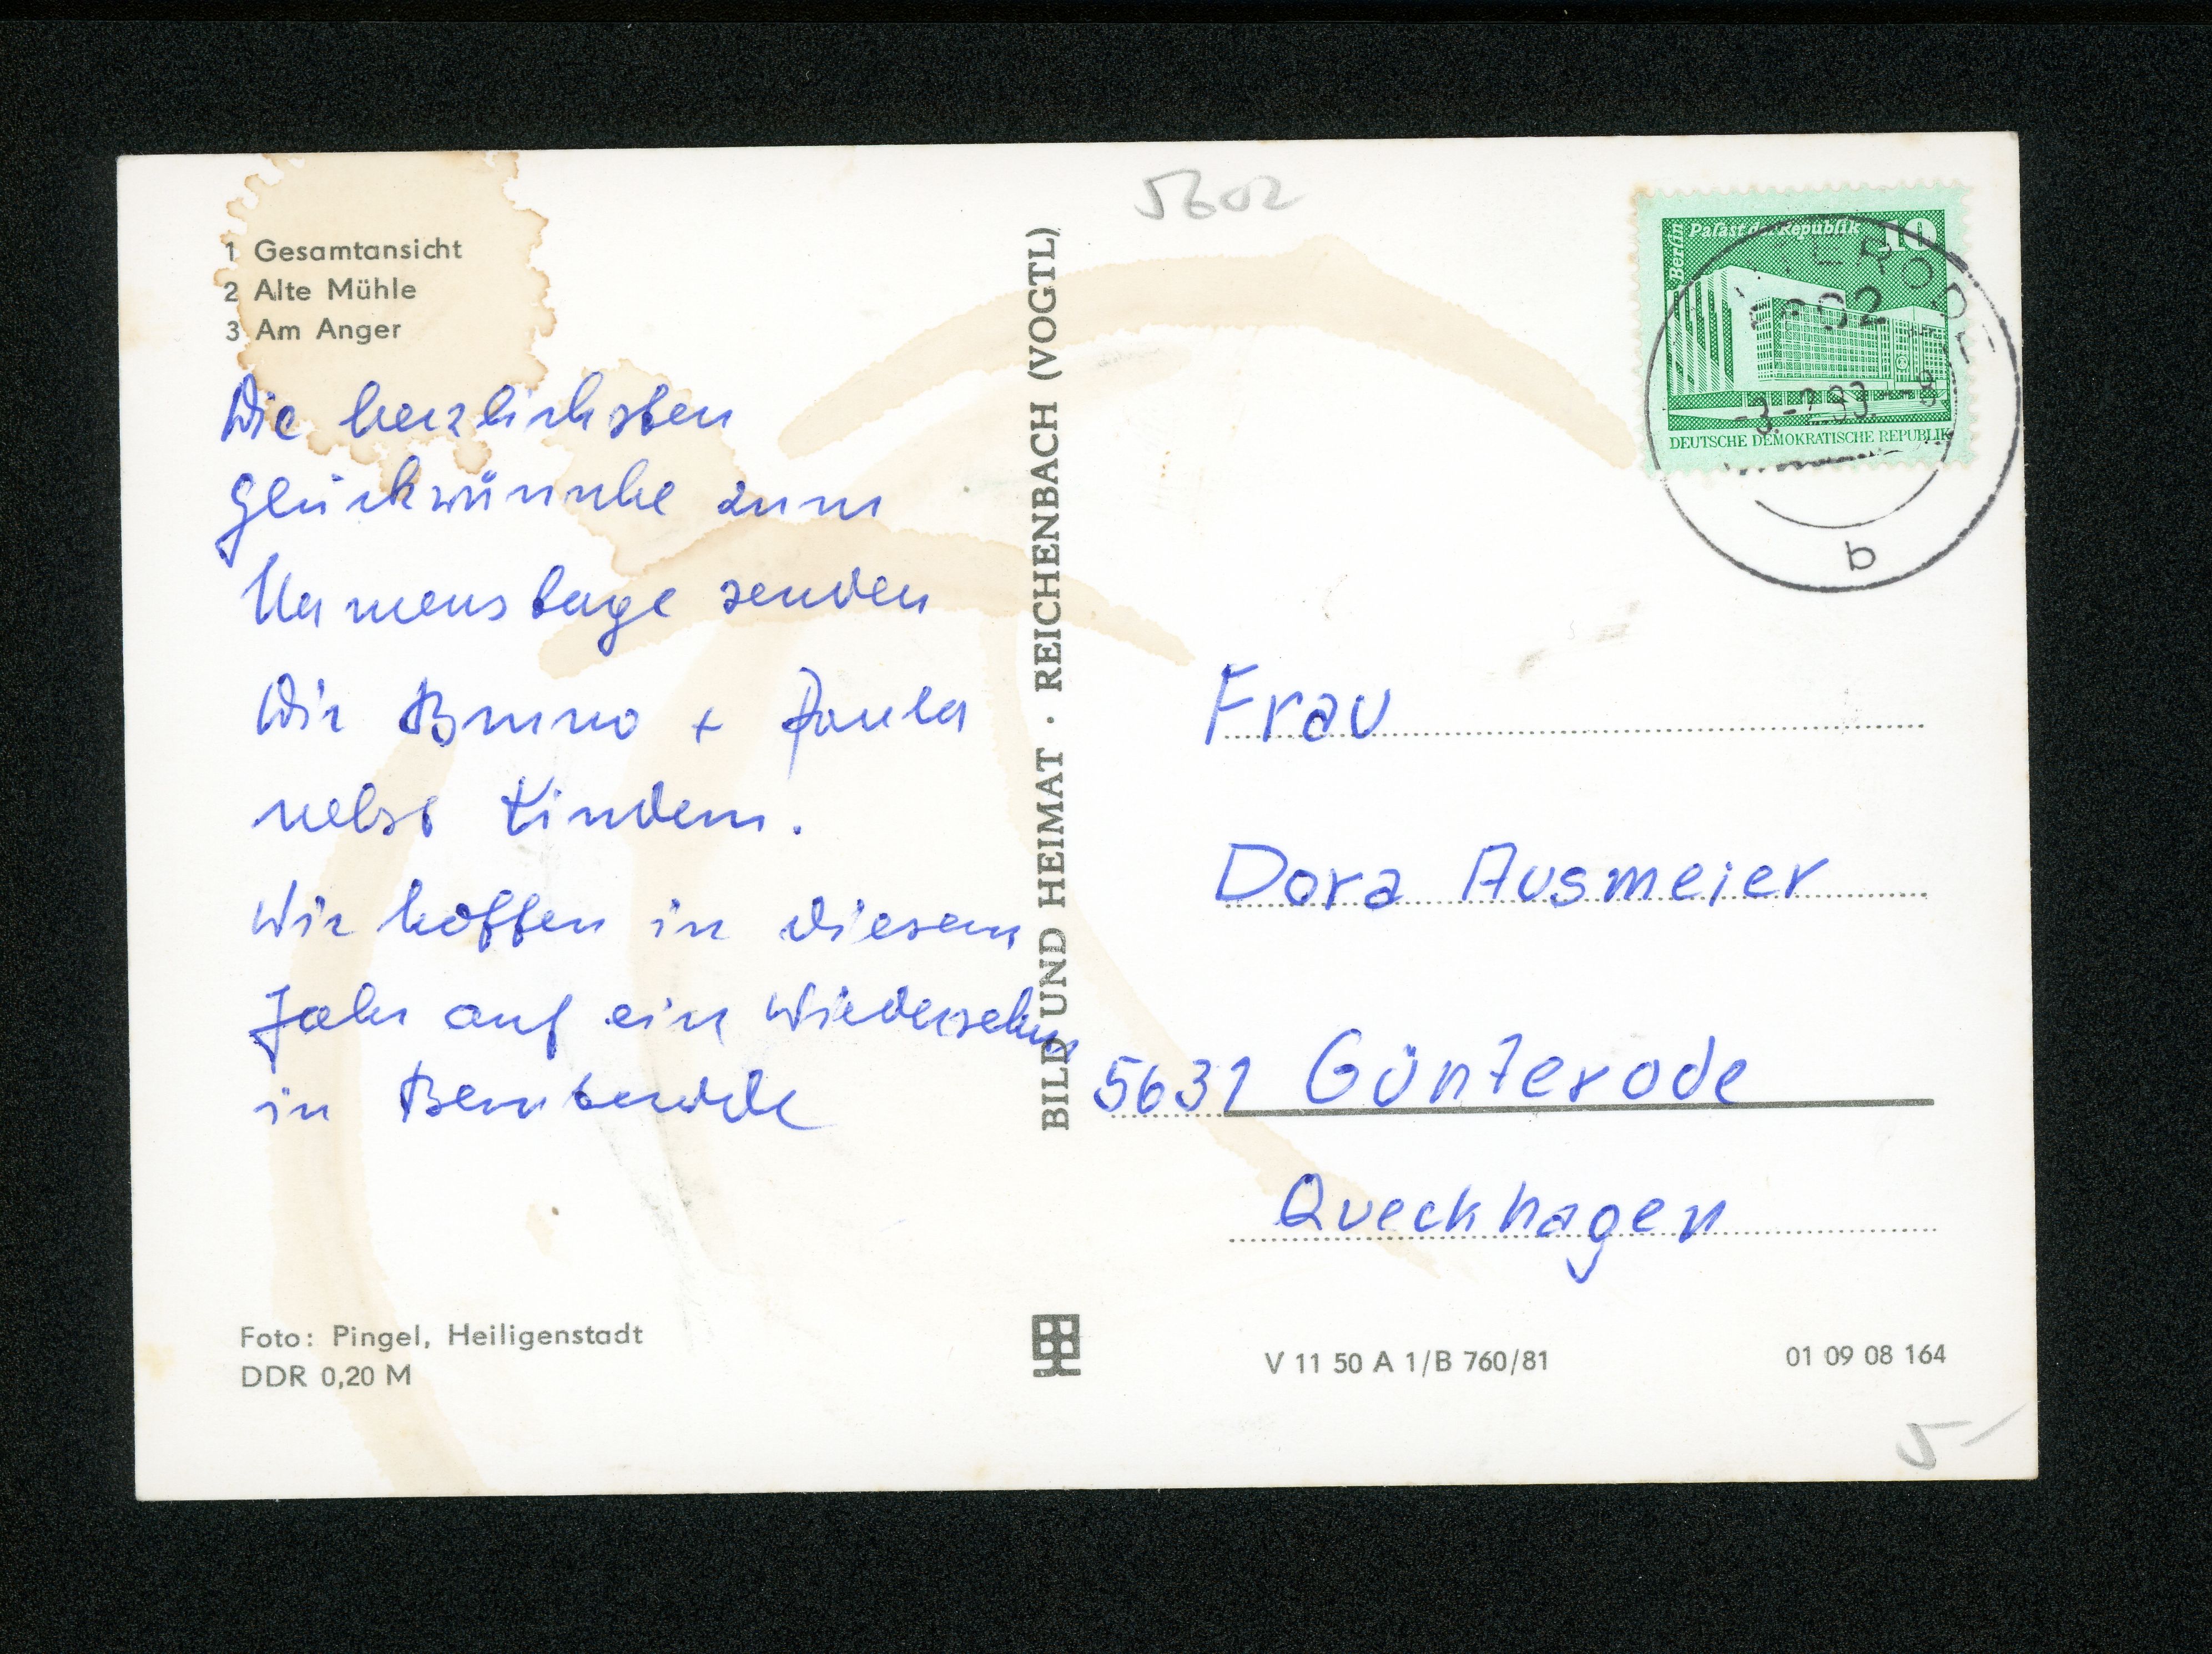 5602
1 Gesamtansicht
2 Alte Mühle
3 Am Anger
Die herzlichsten
Glückwünsche zum
Namenstage senden
Wir Bruno + Paula
nebst Kindern.
Wir hoffen in diesem
Jahr auf ein Wiedersehn
in
Foto: Pingel, Heiligenstadt
DDR 0,20 M
BILD UND HEIMAT · REICHENBACH (VOGTL)
Berlin
Palast der Republik 10
DEUTSCHE DEMOKRATISCHE REPUBLIK
b
Frau
Dora Ausmeier
5631 Günterode
Queckhagen
V 11 50 A 1/B 760/81
01 09 08 164
5-